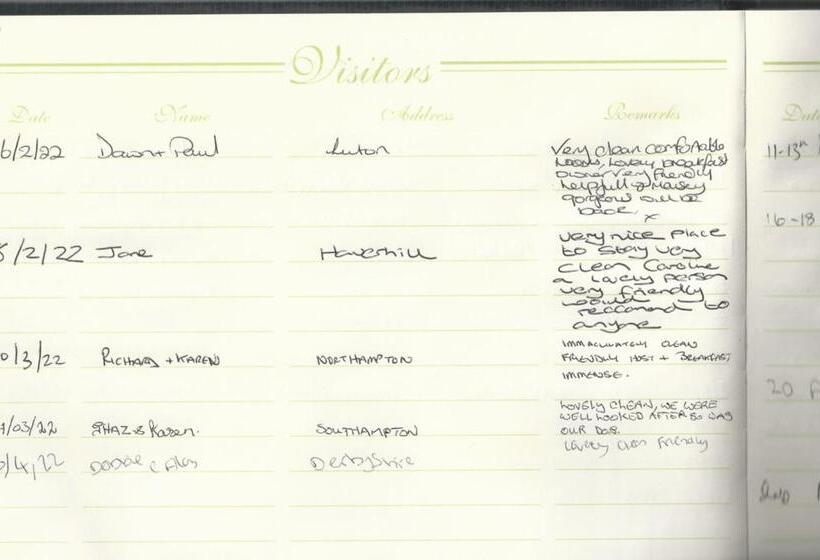 Visitors
Date Name Address Remarks
6/2/22 Dawn + Paul Luton Very clean comfortable
lovely breakfast
owner very friendly
helpfull & Maisey
gorgeous will be
back. x
5/2/22 Jane Haverhill very nice place
to stay very
clean Caroline
a lovely person
very friendly
would
reccomend to
anyone
0/3/22 RICHARD + KAREN NORTHAMPTON IMMACULATELY CLEAN
FRIENDLY HOST + BREAKFAST
IMMENSE.
/03/22 SHAZ & Karen. SOUTHAMPTON LOVELY CLEAN, WE WERE
WELL LOOKED AFTER SO WAS
OUR DOG.
/4/22 Derbyshire Lovely clean friendly
Date
11-13th
16-18
20
2nd